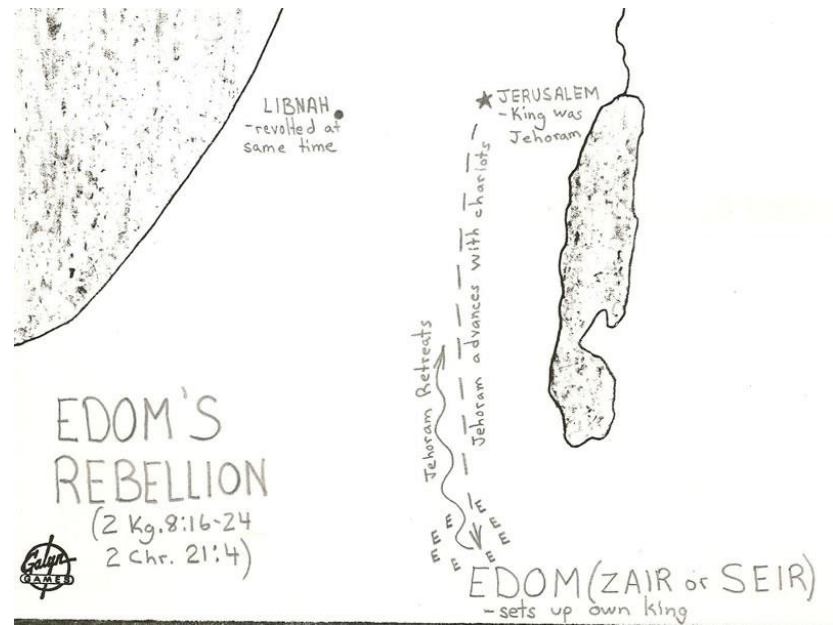 LIBNAH
-revolted at
same time
JERUSALEM
- King was
Jehoram
Jehoram advances with chariots
Jehoram Retreats
EDOM'S
REBELLION
(2 Kg. 8:16-24
2 Chr. 21:4)
E
E
E
E
E
E
E
E
E
E
EDOM (ZAIR or SEIR)
-sets up own king
Galyn
GAMES